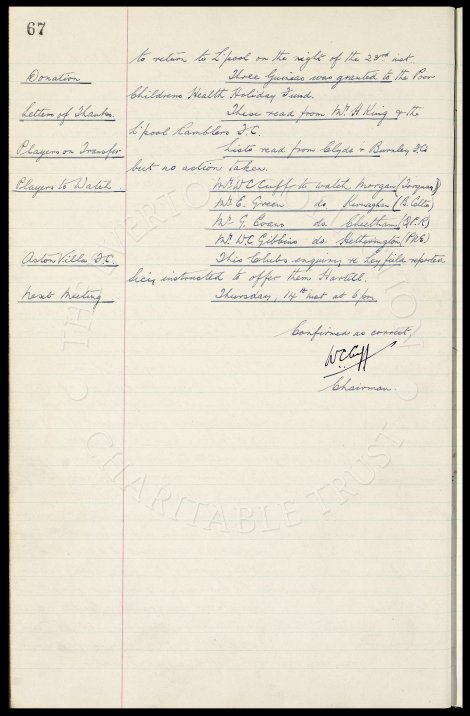 67
to return to L'pool on the night of the 23rd inst.
Donation Three Guineas was granted to the Poor
Childrens Health Holiday Fund.
Letters of Thanks. These read from Mr. A King & the
L'pool Ramblers F.C.
Players on Transfer Lists read from Clyde & Burnley F.Cs
but no action taken.
Players to Watch Mr. W C Cuff to watch Morgan (Torquay)
Mr. E. Green do Kernaghan (B. Celtic)
Mr. G. Evans do. Cheetham (Q.P.R)
Mr. W C Gibbins do. Hetherington (P.N.E)
Aston Villa F.C. This Clubs enquiry re Leyfield reported
Secy instructed to offer them Hartill.
Next Meeting Thursday, 14th inst at 6 pm.
Confirmed as correct,
W.C. Cuff
Chairman.
CHARITABLE TRUST